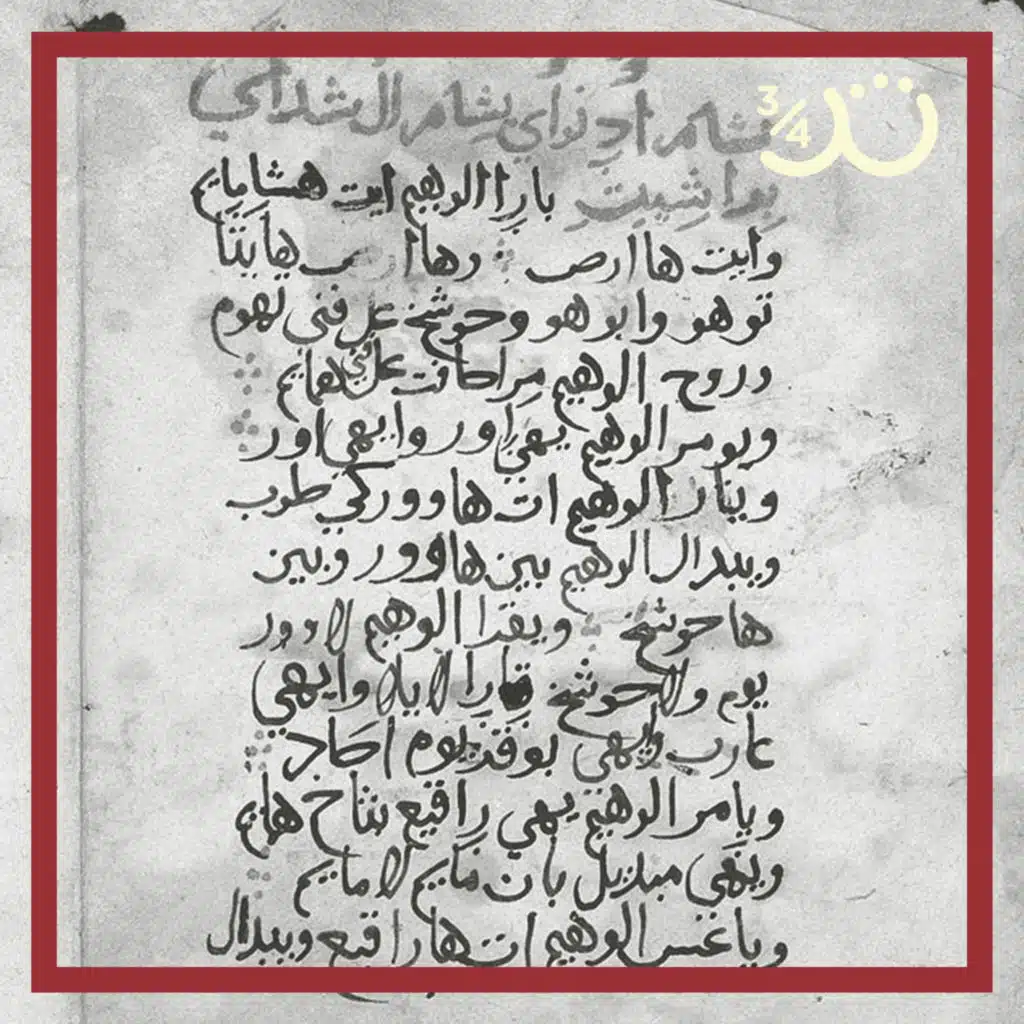 بشم ادِنواي بِشلم ال شداي
3/4
بِراشِيتِ بارا الوهيم ايت هشامايم
وايت ها ارص وها ارص هايتا
توهو وابوهو وحوشخ عل فني تهوم
وروح الوهيم مراكافت عل فني همايم
ويومر الوهيم يهي اور وايهي اور
ويار الوهيم ات هاوور كي طوب
ويبدال الوهيم بين هاوور وبين
ها حوشخ ويقرا الوهيم لاوور
يوم ولاحوشخ قارا لايلا وايهي
عارب وايهي بوقر يوم اكاد
ويامر الوهيم يهي راقيع بتاخ هايم
ويهي مبديل بان مايم لامايم
وياعس الوهيم ات هاراقيع ويبدال